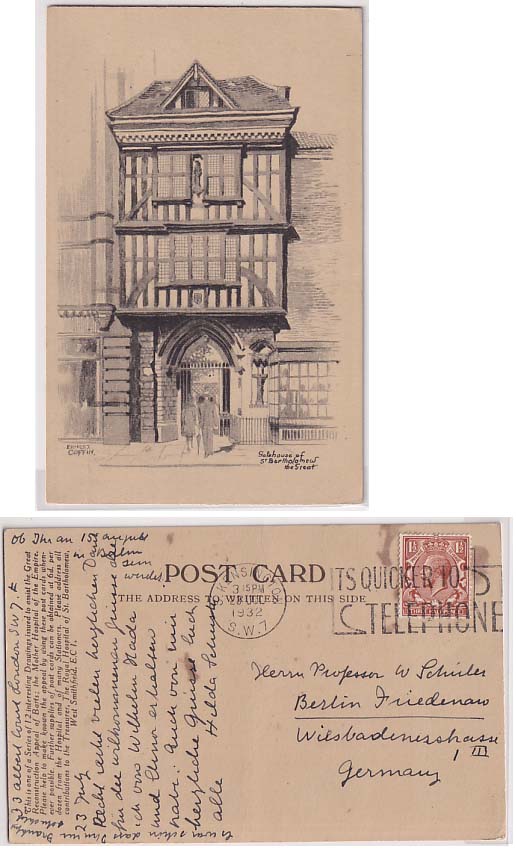 ERNEST
COFFIN.
Gatehouse of
St Bartholomew
the Great
POST CARD
THE ADDRESS TO BE WRITTEN ON THIS SIDE
3.15PM
JUL
1932
S.W.7
ITS QUICKER TO
TELEPHONE
Herrn Professor W Schüler
Berlin Friedenau
Wiesbadenerstrasse
1 III
Germany
This is one of a Series of 12 Interesting Drawings issued to assist the Great
Reconstruction Appeal of Barts: the Mother Hospital of the Empire.
Please help to make known the appeal by using these post cards when-
ever possible. Further supplies of post cards can be obtained at 6d. per
dozen from the Hospital and of many Stationers. Please address all
contributions to the Treasurer, The Royal Hospital of St. Bartholomew,
West Smithfield, E.C.1.
33 Albert Court London S W 7.
23 July
Recht recht vielen herzlichen Dank
für die willkommenen Grüsse die
ich von Wilhelm
und erhalten
habe. Auch von mir
herzliche Grüsse Euch
alle Hilda
Es war schön dass
ob Ihr an 15 August
in Berlin
sein
werdet